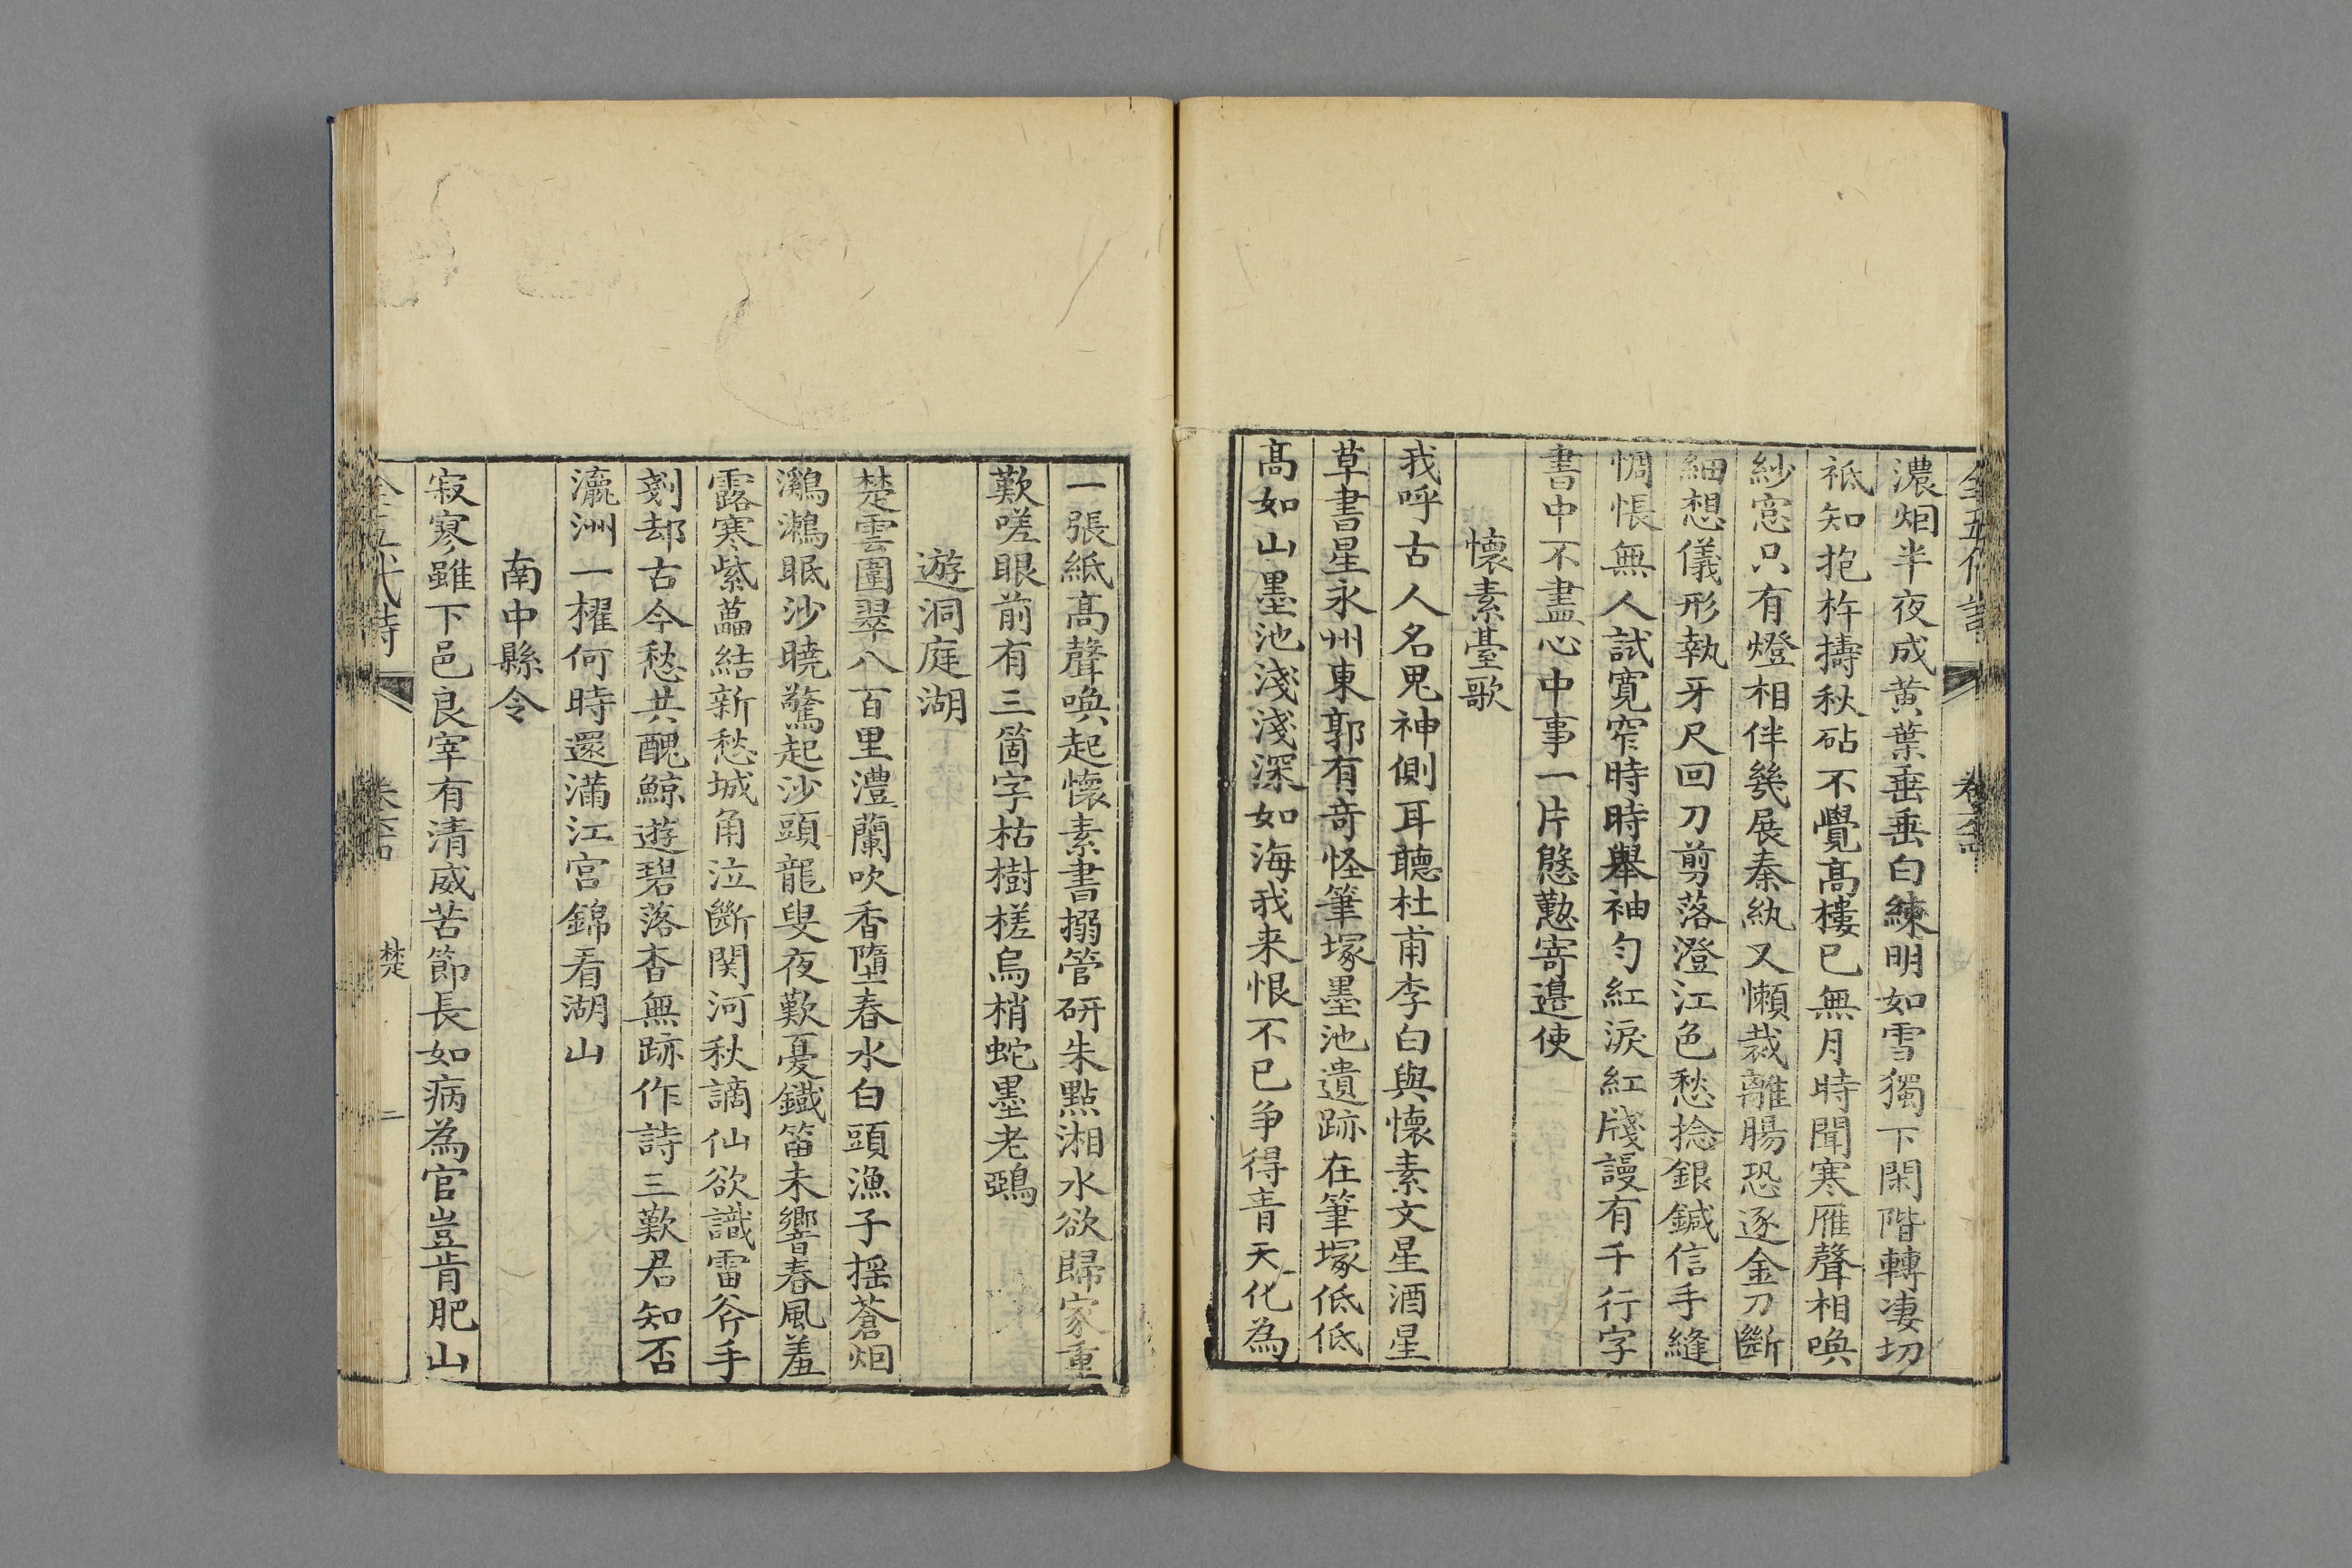 濃烟半夜成黃葉垂垂白練明如雪獨下閑階轉凄切
祗知抱杵擣秋砧不覺高樓已無月時聞寒雁聲相喚
紗窓只有燈相伴幾展秦紈又懶裁離腸恐逐金刀斷
細想儀形執牙尺回刀剪落澄江色愁捻銀鍼信手縫
惆悵無人試寬窄時時舉袖勻紅淚紅牋謾有千行字
書中不盡心中事一片慇懃寄邉使
懷素臺歌
我呼古人名鬼神側耳聽杜甫李白與懷素文星酒星
草書星永州東郭有奇怪筆塚墨池遺跡在筆塚低低
高如山墨池淺淺深如海我来恨不已争得青天化為
一張紙高聲喚起懷素書搦管研朱點湘水欲歸家重
歎嗟眼前有三箇字枯樹槎烏梢蛇墨老鵶
遊洞庭湖
楚雲圍翠八百里澧蘭吹香墮春水白頭漁子揺蒼烟
鸂鶒眠沙曉驚起沙頭龍叟夜歎憂鐵笛未響春風羞
露寒紫藟結新愁城角泣斷関河秋謫仙欲識雷斧手
剗却古今愁共醜鯨遊碧落杳無跡作詩三歎君知否
瀛洲一櫂何時還滿江宫錦看湖山
南中縣令
寂寥雖下邑良宰有清威苦節長如病為官豈肯肥山
全五代詩
楚
二